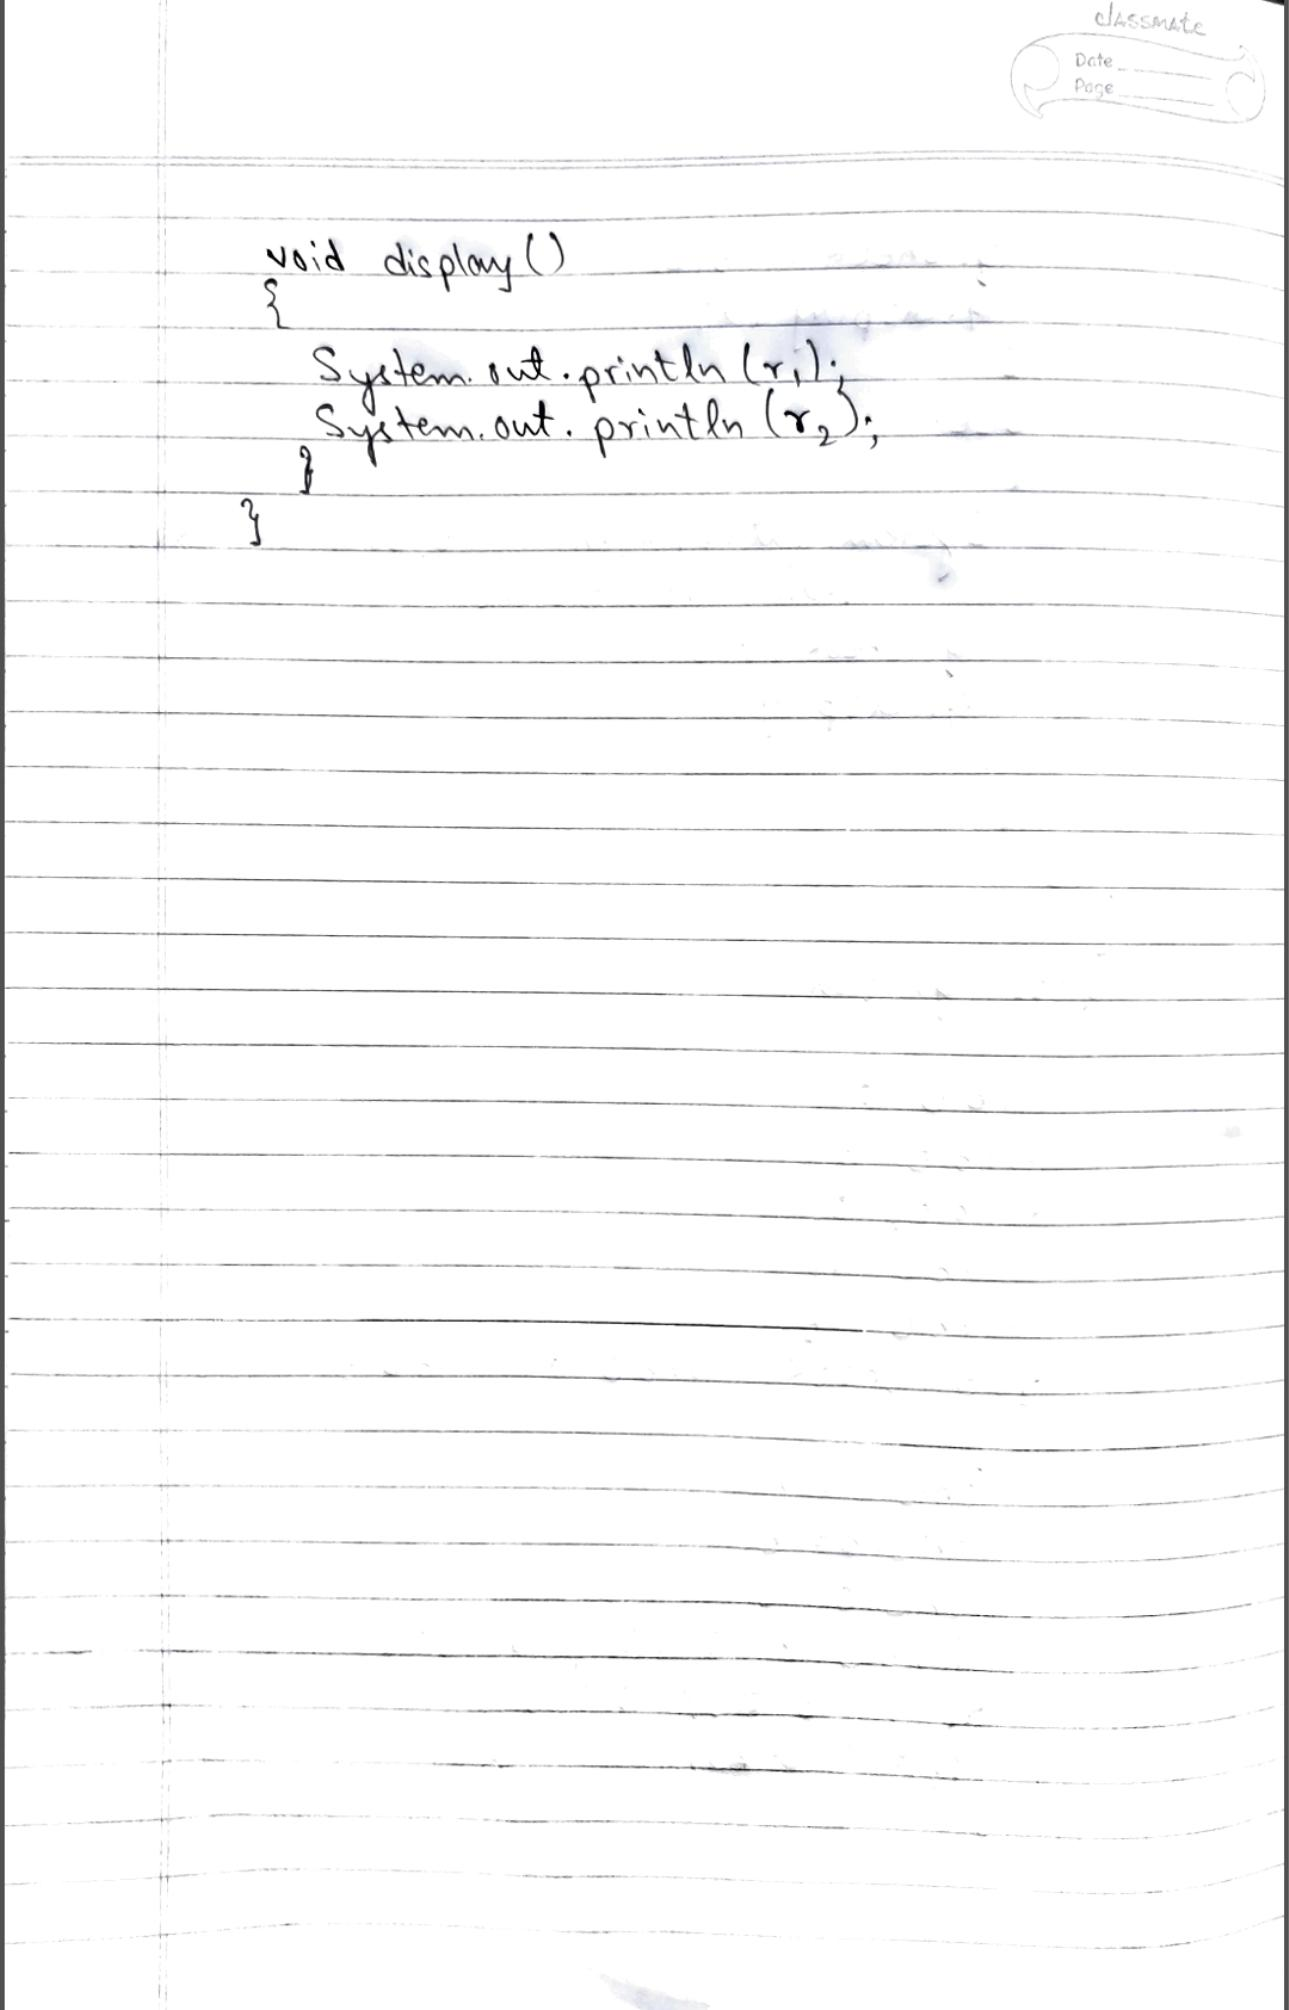 classmate
Date
Page
void display()
{
System.out.println(r1);
System.out.println(r2);
}
}